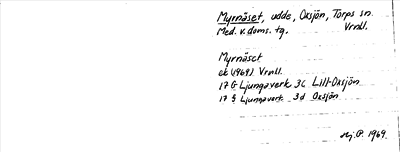 Myrnäset, udde, Oxsjön, Torps sn.
Med. v. doms. tg. Vrnll.
Myrnäset
ek (1969) Vrnll.
17 G Ljungaverk 3c Lill-Oxsjön
17 G Ljungaverk 3d Oxsjön
1969